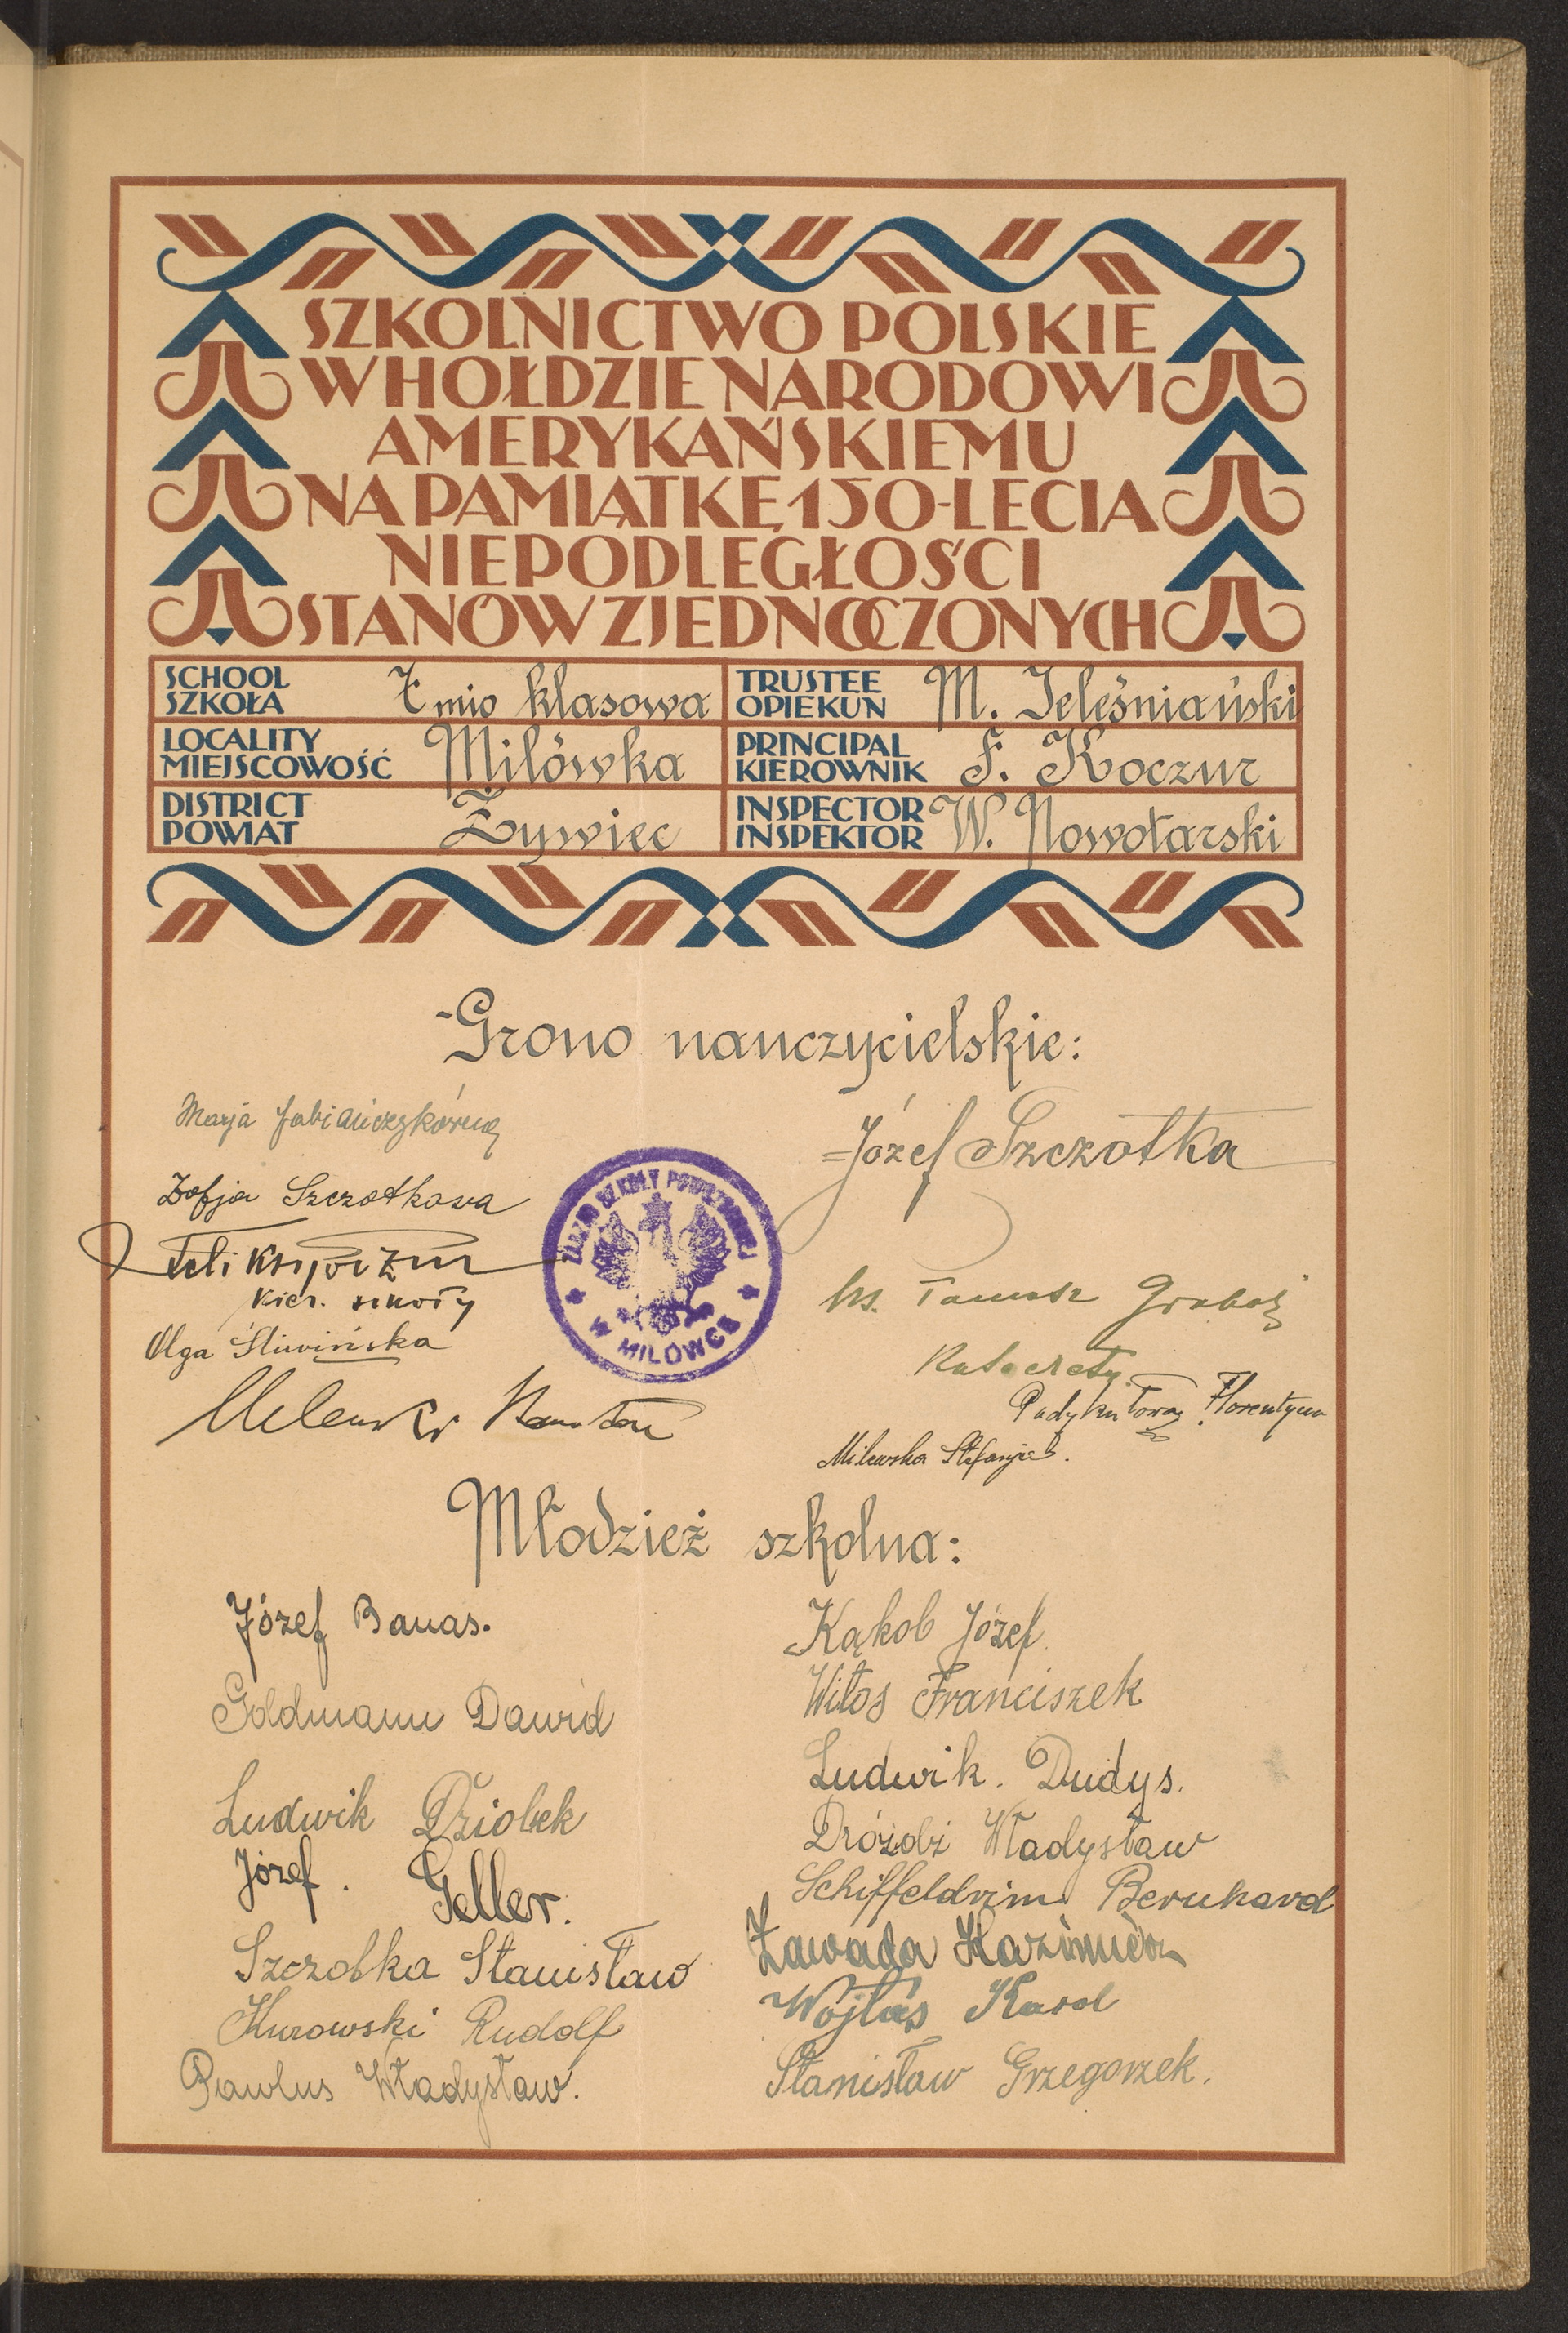 SZKOLNICTWO POLSKIE
W HOŁDZIE NARODOWI
AMERYKAŃSKIEMU
NA PAMIĄTKĘ 150-LECIA
NIEPODLEGŁOŚCI
STANÓW ZJEDNOCZONYCH
SCHOOL
SZKOŁA
7 mio klasowa
TRUSTEE
OPIEKUN
M. Jeleśniański
LOCALITY
MIEJSCOWOŚĆ
Milówka
PRINCIPAL
KIEROWNIK
F. Koczur
DISTRICT
POWIAT
Żywiec
INSPECTOR
INSPEKTOR
W. Nowotarski
Grono nauczycielskie:
Marja
Zofja Szczotkowa
Kier. szkoły
Olga Śliwińska
ZARZĄD SZKOŁY POWSZECHNEJ
W MILÓWCE
Józef Szczotka
ks. Tomasz
Florentyna
Milewska Stefanja.
Młodzież szkolna:
Józef Banas.
Goldmann Dawid
Ludwik Dziobek
Józef. Geller.
Szczotka Stanisław
Kurowski Rudolf
Pawlus Władysław.
Kąkol Józef
Witos Franciszek
Ludwik. Dudys.
Dróżdż Władysław
Bernhard
Zawada Kazimierz
Wojtas Karol
Stanisław Grzegorzek.